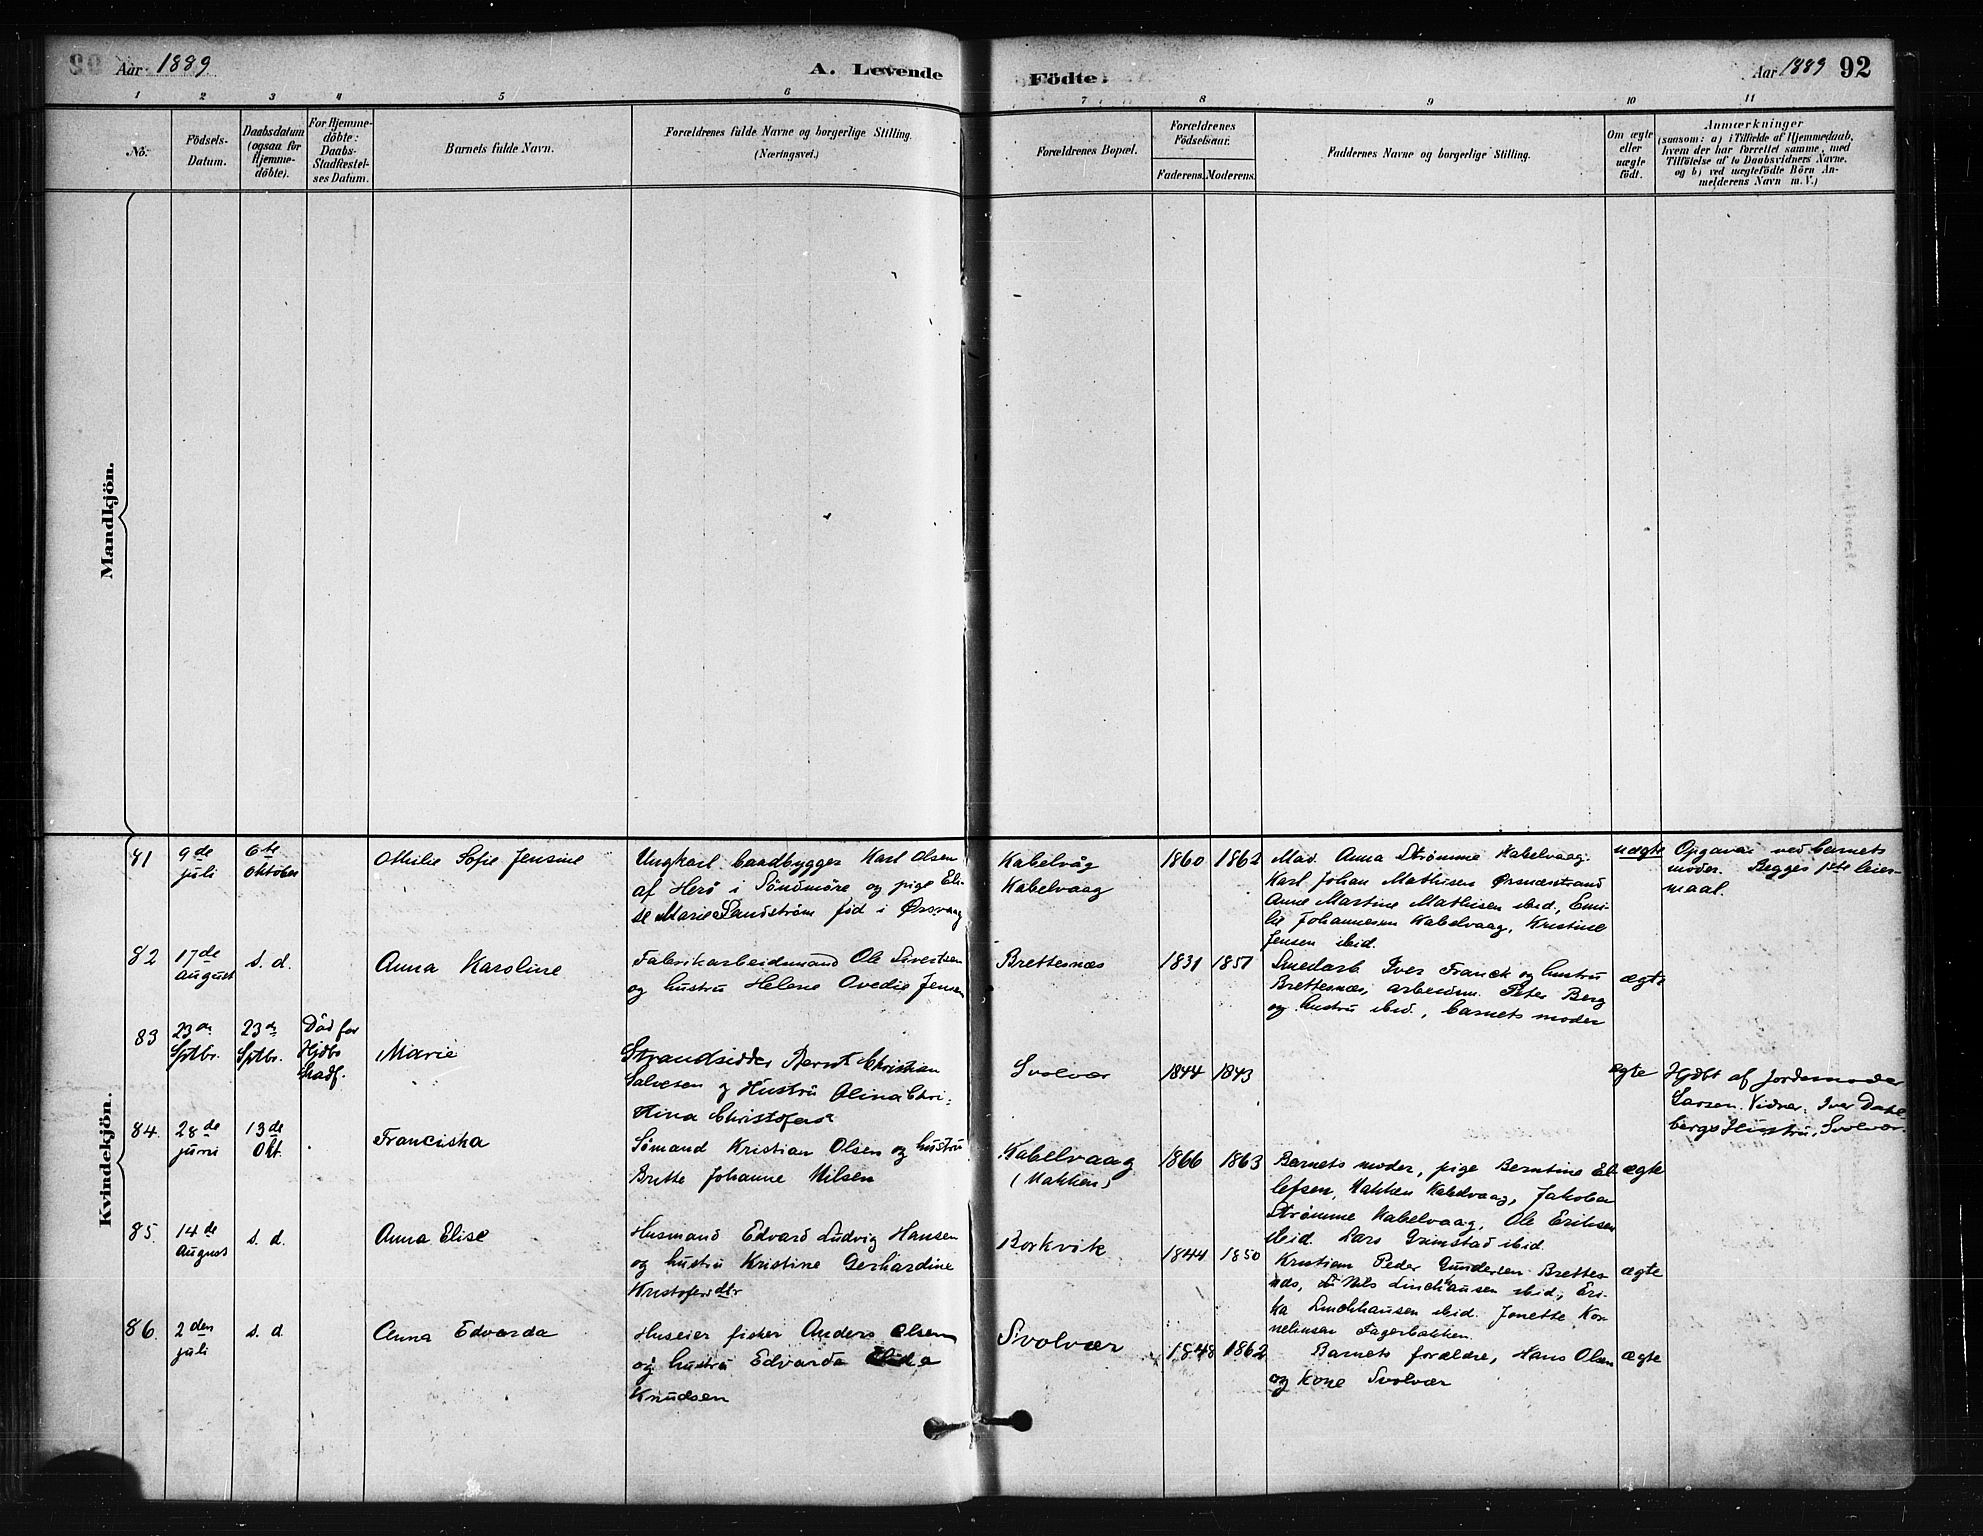 Aar 1889
A. Levende
Födte.
Aar 1889 92
1 2 3 4 5 6 7 8 9 10 11
No.
Födsels-
Datum.
Daabsdatum
(ogsaa for
Hjemme-
döbte).
For Hjemme-
döbte:
Daabs-
Stadfæstel-
ses Datum.
Barnets fulde Navn.
Forældrenes fulde Navne og borgerlige Stilling.
(Næringsvei.)
Forældrenes Bopæl.
Forældrenes
Födselsaar.
Faderens. Moderens.
Faddernes Navne og borgerlige Stilling.
Om ægte
eller
uægte
födt.
Anmærkninger
(saasom: a) i Tilfælde af Hjemmedaab,
hvem der har forrettet samme, med
Tilföielse af to Daabsvidners Navne.
og b) ved uægtefödte Börn An-
melderens Navn m. V.)
Mandkjön.
Kvindekjön.
81
9de
juli
6te
Oktober
Othilie Sofie Jensine
Ungkarl baadbygger Karl Olsen
af Herø i Söndmöre og pige Eli-
se Marie Sandström fød i Ørsvaag
Kabelvåg
Kabelvaag
1860 1862
Mad. Anna Strømme Kabelvaag.
Karl Johan Mathisen Ørsnæsstrand
Anne Martine Mathisen ibid, Emi-
lie Johannesen Kabelvaag, Kristine
Jensen ibid.
uægte
Opgava ved barnets
moder. Begges 1ste leier-
maal.
82
17de
august
s. d.
Anna Karoline
Fabrikarbeidsmand Ole Sivertsen
og hustru Helene Ovedie Jensen
Brettesnæs
1831 1851
Smedarb. Iver Franck og hustru
Brettesnæs, arbeidsm. Peter Berg
og hustru ibid., barnets moder
ægte
83
23de
Sptbr.
23de
Sptbr.
Död før
Hjdbs
stadf.
Marie
Strandsidder Bernt Christian
Salvesen og Hustru Olina Chri-
stina Christofers
Svolvær
1844 1843
ægte
Hjdbt af Jordemoder
Larsen. Vidner: Iver Dahl
bergs Hustru, Svolvær.
84.
28de
juni
13de
Okt.
Franciska
Sömand Kristian Olsen og hustru
Britte Johanne Nilsen
Kabelvaag
(Nakken)
1866 1863
Barnets moder, pige Berntine El-
lefsen, Nakken Kabelvaag, Jakobin
Strømme Kabelvaag, Ole Eriksen
ibid. Lars Grimstad ibid.
ægte
85.
14de
august
s. d.
Anna Elise
Husmand Edvard Ludvig Hansen
og hustru Kristine Gerhardine
Kristofersdtr
Borkvik
1844 1850
Kristian Peder Gundersen Brettes-
næs, Nils Linchausen ibid, Eri-
ka Linchhausen ibid. Jonette Kor-
neliusen Fagerbakken.
ægte
86.
2den
juli
s. d.
Anna Edvarda
Huseier fisker Anders Olsen
og hustru Edvarda
Knudsen
Svolvær
1848 1862
Barnets forældre, Hans Olsen
og kone Svolvær
ægte